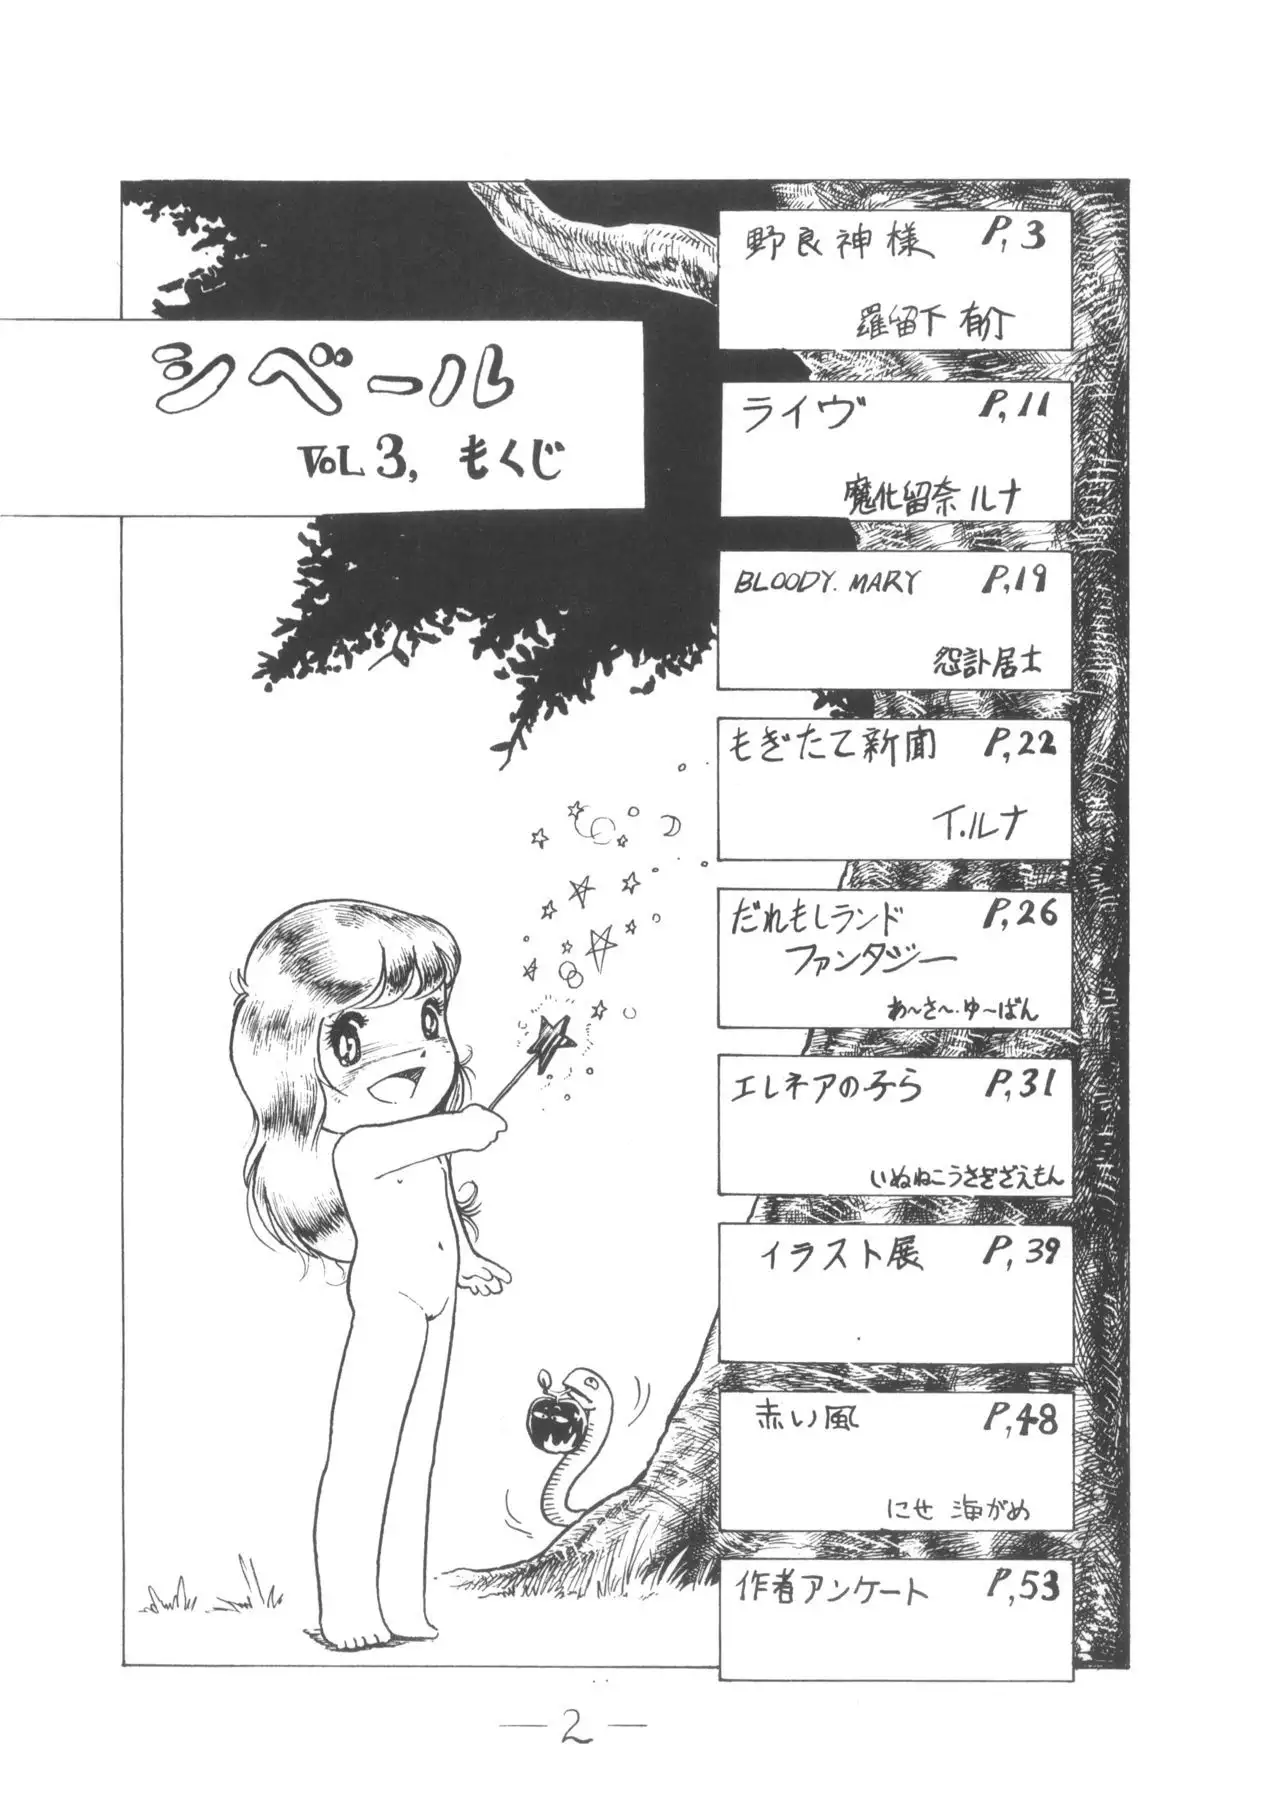 シベール
VOL 3, もくじ
野良神様 P,3
羅留下 有介
ライヴ P,11
魔化留奈 ルナ
BLOODY. MARY P,19
居士
もぎたて新聞 P,22
イ.ルナ
だれもしランド P,26
ファンタジー
あ～さ～.ゆ～ばん
エレネアの子ら P,31
いぬねこうさぎざえもん
イラスト展 P,39
赤い風 P,48
にせ 海がめ
作者アンケート P,53
— 2 —